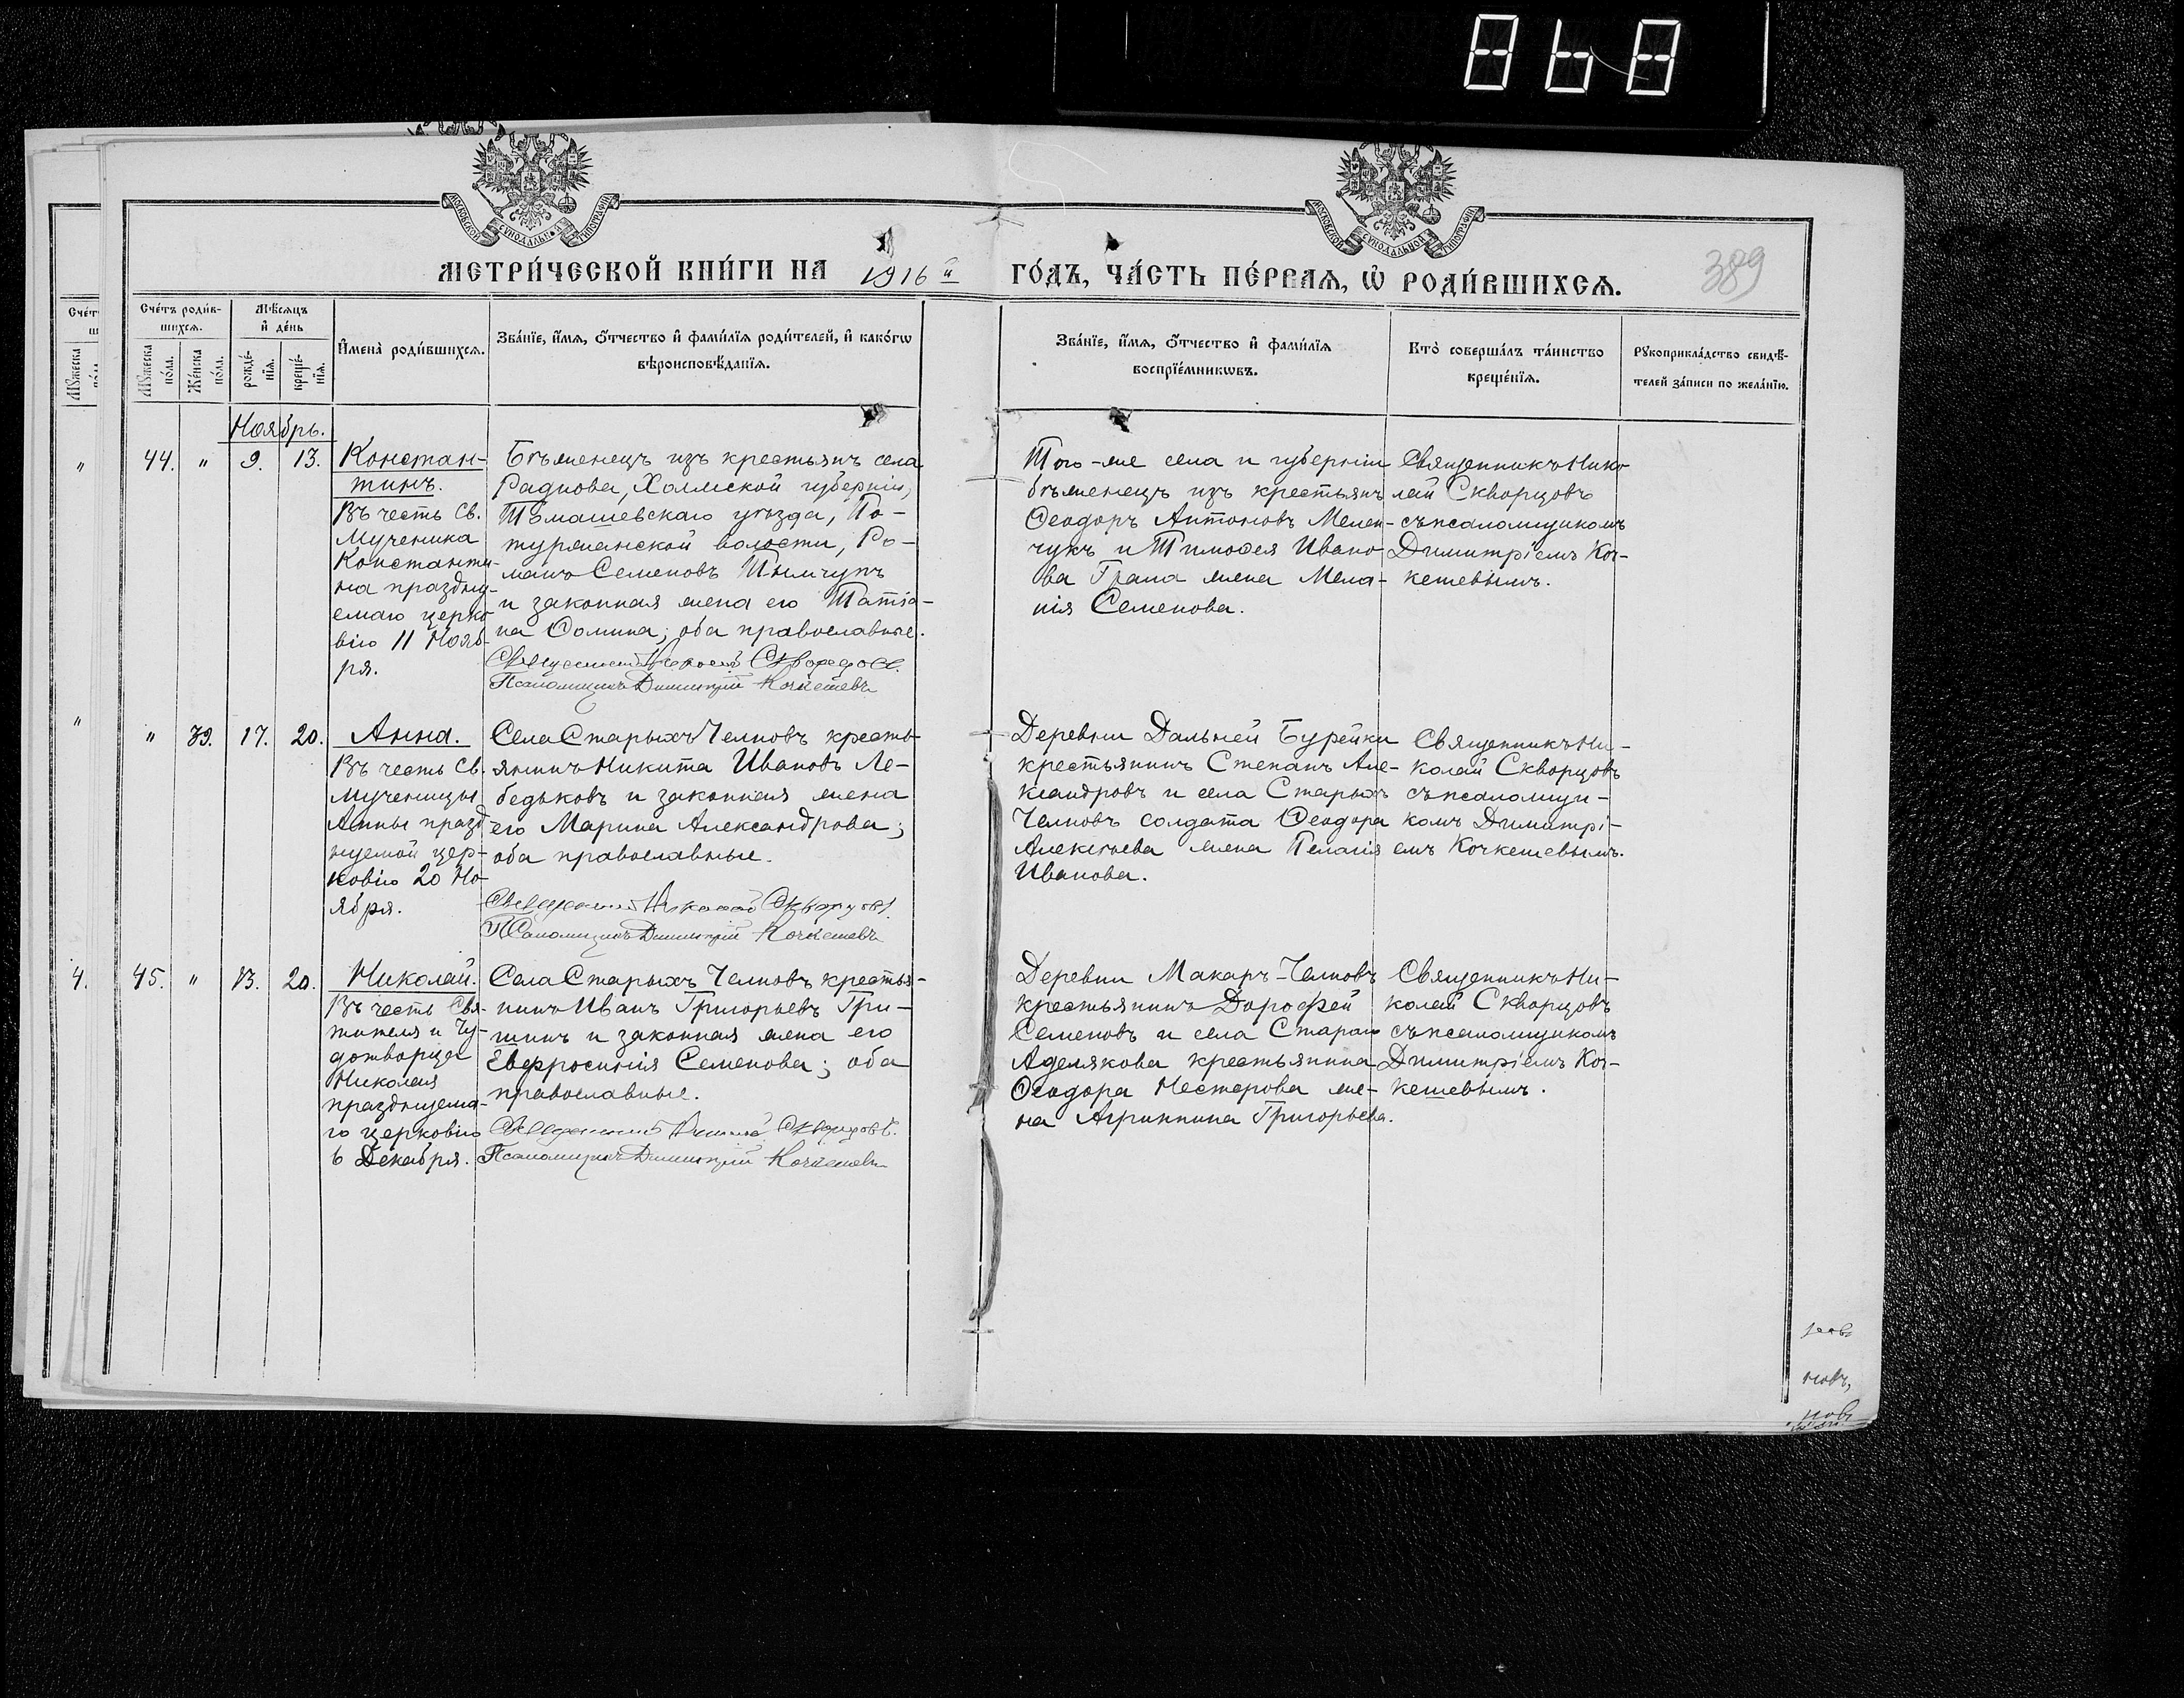 848
МОСКОВСКОЙ СѴНОДАЛЬНОЙ ТИПОГРАФІИ
МОСКОВСКОЙ СѴНОДАЛЬНОЙ ТИПОГРАФІИ
МЕТРИ́ЧЕСКОЙ КНИ́ГИ НА 1916й ГО́ДЪ, ЧА́СТЬ ПЕ́РВАЯ, Ѡ҆ РОДИ́ВШИХСЯ.
389
Сче́тъ роди́в-
шихся.
Мꙋжеска
по́ла.
Же́нска
по́ла.
Мѣ́сяцъ
и҆ де́нь
рожде́-
нїя.
креще́-
нїя.
И҆мена̀ роди́вшихся.
Зва́нїе, и҆́мя, ѻ҆́тчество и҆ фами́лїя роди́телей, и҆ како́гѡ
вѣроисповѣ́данїя.
Зва́нїе, и҆́мя, ѻ҆́тчество и҆ фами́лїя
воспрїе́мникѡвъ.
Кто̀ соверша́лъ та́инство
креще́нїя.
Рꙋкоприкла́дство свидѣ́-
телей за́писи по жела́нїю.
Ноябрь.
44. " 9. 13.
Констан-
тинъ.
Въ честь Св.
Мученика
Константи-
на праздну-
емаго церко-
вію 11 Нояб-
ря.
Бѣженецъ изъ крестьянъ села
Раднова, Холмской губерніи,
Томашевскаго уѣзда, По-
туржанской волости, Ро-
манъ Семеновъ
и законная жена его Татіа-
на Ѳомина; оба православные.
Священникъ Николай Скворцовъ.
Псаломщикъ Димитрій Кочкешевъ
Того-же села и губерніи
бѣженецъ изъ крестьянъ
Ѳеодоръ Антоновъ Мелен-
чукъ и Тимоѳея Ивано-
ва Грама жена Мела-
нія Семенова.
Священникъ Нико-
лай Скворцовъ
съ псаломщикомъ
Димитріемъ Коч-
кешевымъ.
" 39. 17. 20.
Анна.
Въ честь Св.
мученицы
Анны празд-
нуемой цер-
ковію 20 Но-
ября.
Села Старыхъ Челновъ кресть-
янинъ Никита Ивановъ Ле-
бедьковъ и законная жена
его Марина Александрова;
оба православные.
Священникъ Николай Скворцовъ.
Псаломщикъ Димитрій Кочкешевъ
Деревни Дальней Бурейки
крестьянинъ Степанъ Але-
ксандровъ и села Старыхъ
Челновъ солдата Ѳеодора
Алексѣева жена Пелагія
Иванова.
Священникъ Ни-
колай Скворцовъ
съ псаломщи-
комъ Димитрі-
емъ Кочкешевымъ.
45. " 13. 20.
Николай.
Въ честь Свя-
тителя и Чу-
дотворца
Николая
празднуема-
го церковію
6 Декабря.
Села Старыхъ Челновъ крестья-
нинъ Иванъ Григорьевъ Гри-
шинъ и законная жена его
Евфросинія Семенова; оба
православные.
Священникъ Николай Скворцовъ.
Псаломщикъ Димитрій Кочкешевъ
Деревни Макаръ-Челновъ
крестьянинъ Дорофей
Семеновъ и села Стараго
Аделякова крестьянина
Ѳеодора Нестерова же-
на Агриппина Григорьева.
Священникъ Ни-
колай Скворцовъ
съ псаломщикомъ
Димитріемъ Коч-
кешевымъ.